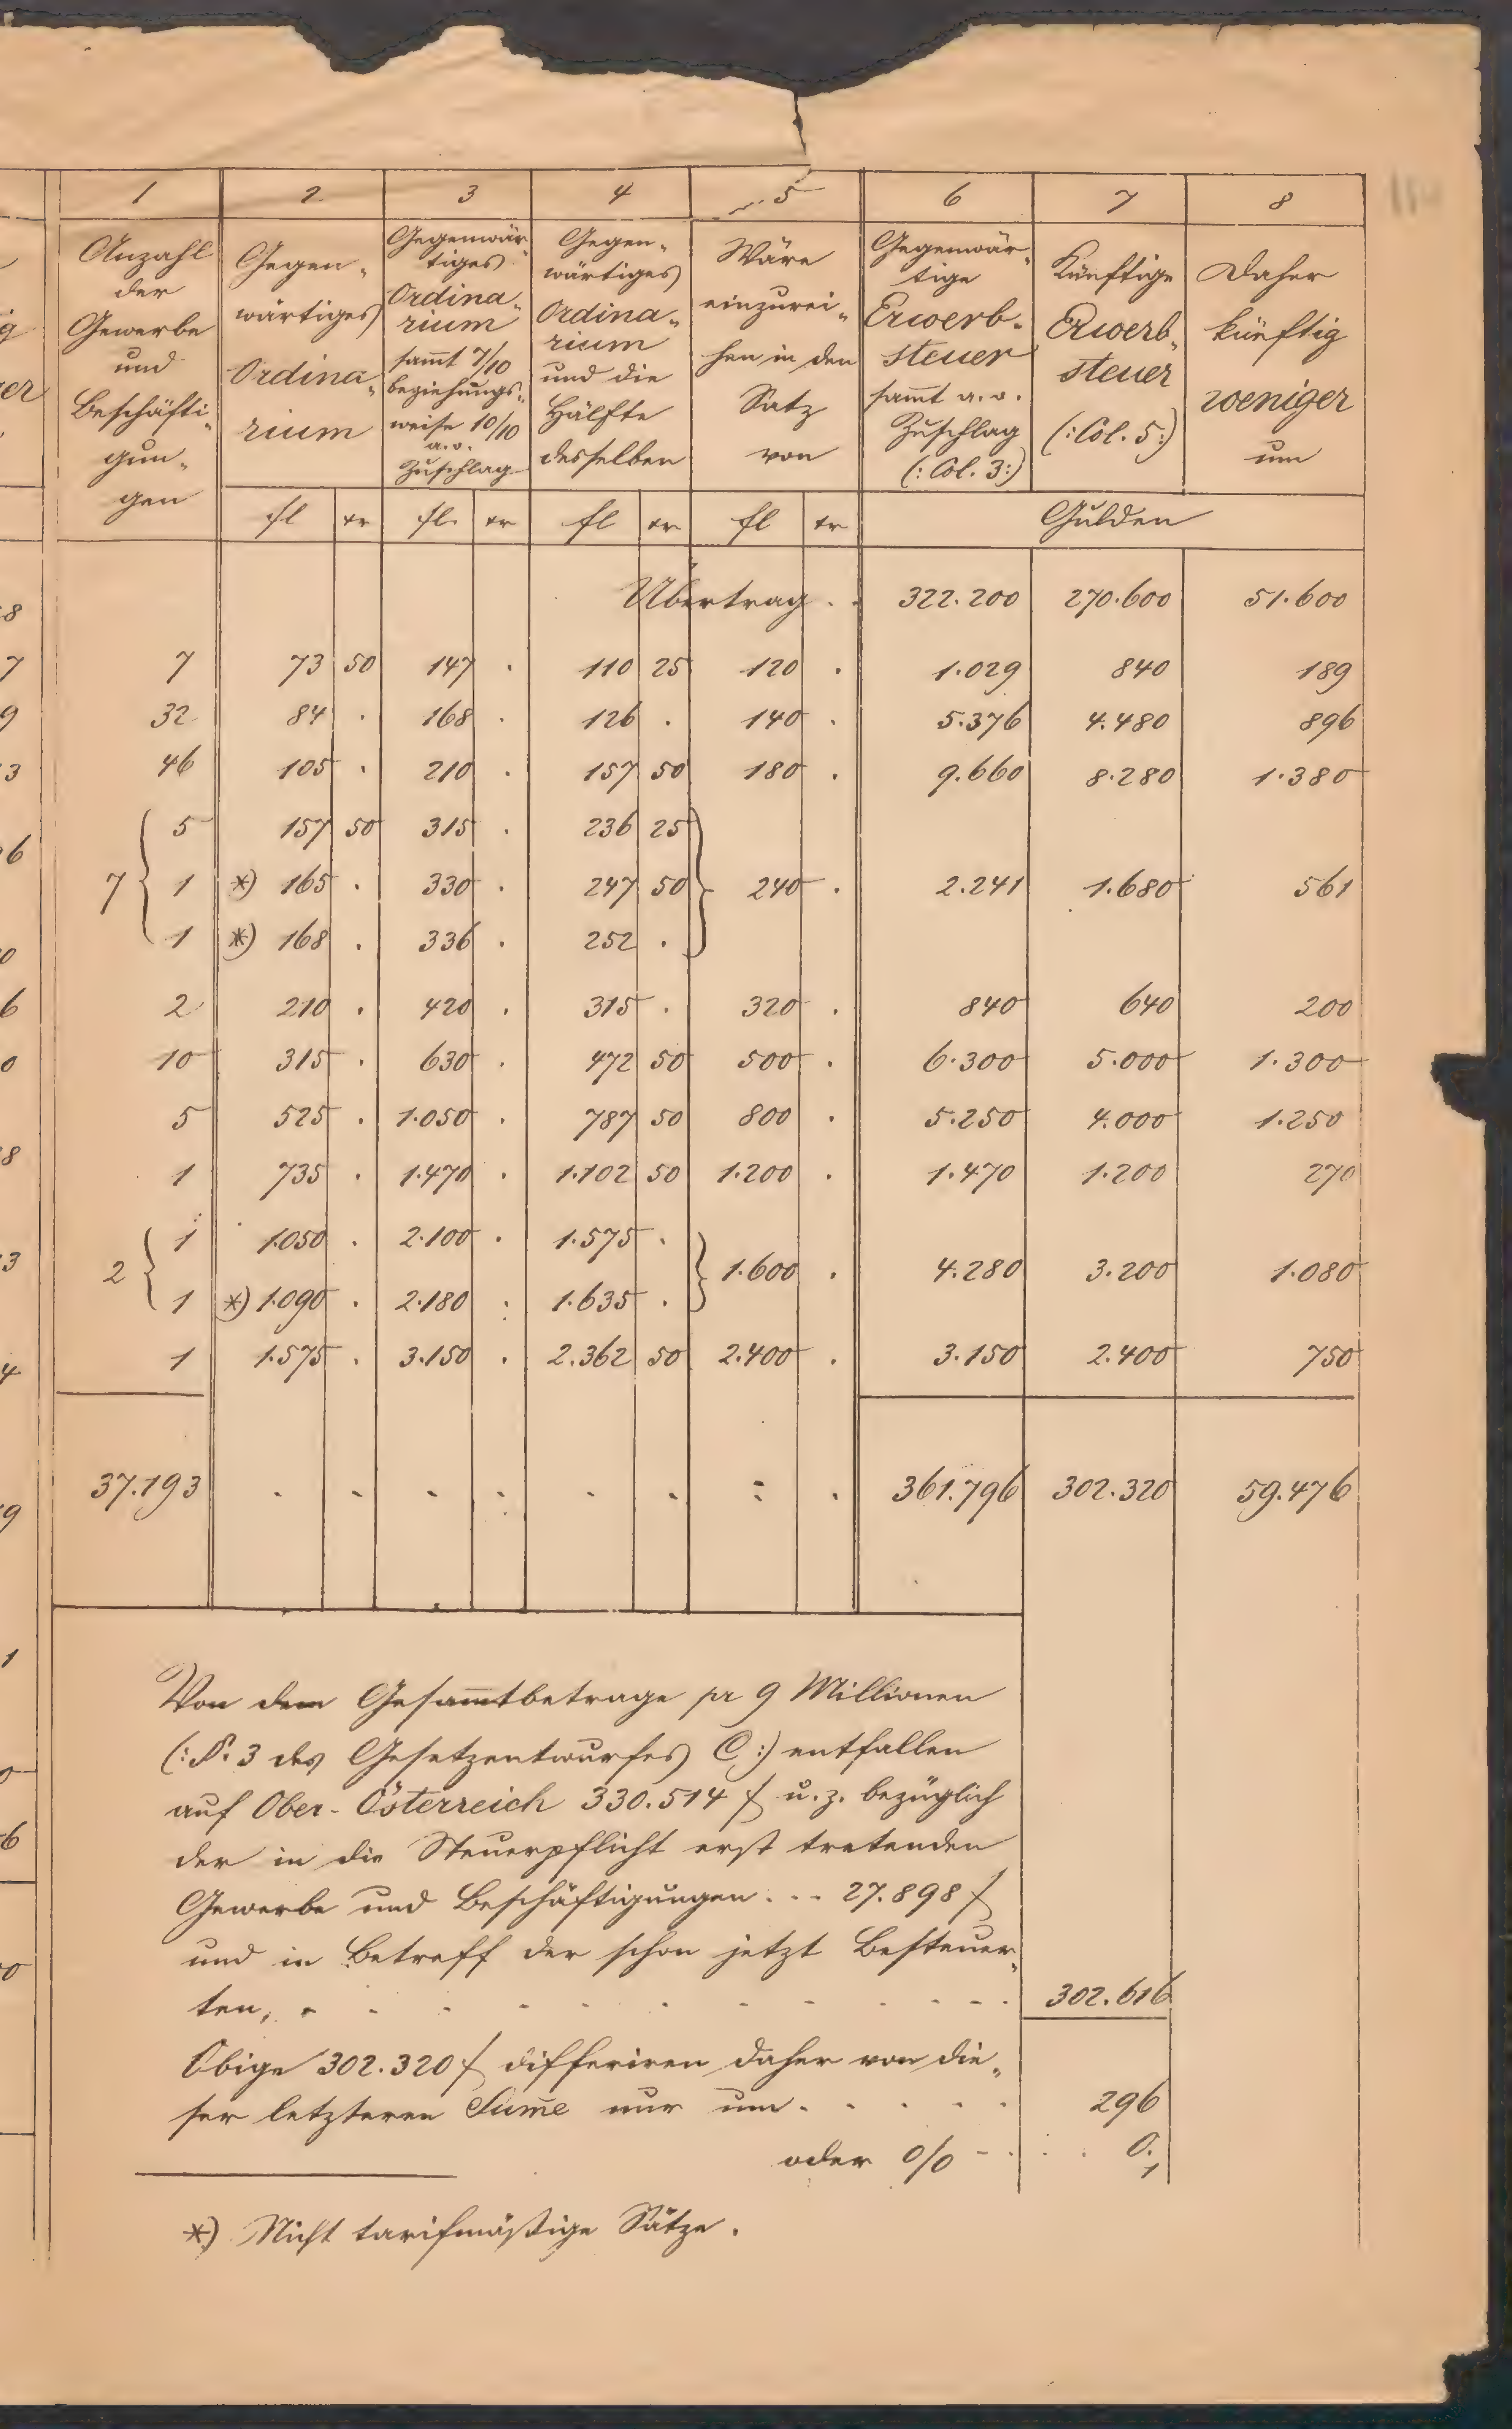 1 2 3 4 5 6 7 8
Anzahl der Gewerbe und Beschäfti„ gun„ gen
Gegen„ wärtiges Ordina„ rium
Gegenwär„ tiges Ordina„ rium sammt 7/10 beziehungs„ weise 10/10 a.o. Zuschlag
Gegen„ wärtiges Ordina„ rium und die Hälfte desselben
Wäre einzurei„ hen in den Satz von
Gegenwär„ tige Erwerb„ steuer sammt a.o. Zuschlag (: Col. 3:)
Künftige Erwerb„ steuer (: Col. 5:)
Daher künftig weniger um
fl xr fl. xr fl xr fl xr Gulden
Übertrag . . 322.200 270.600 51.600
7 73 50 147 . 110 25 120 . 1.029 840 189
32 84 . 168 . 126 . 140 . 5.376 4.480 896
46 105 . 210 . 157 50 180 . 9.660 8.280 1.380
5 157 50 315 . 236 25
7 { 1 *) 165 . 330 . 247 50 } 240 . 2.241 1.680 561
1 *) 168 . 336 . 252 .
2 210 . 420 . 315 . 320 . 840 640 200
10 315 . 630 . 472 50 500 . 6.300 5.000 1.300
5 525 . 1.050 . 787 50 800 . 5.250 4.000 1.250
1 735 . 1.470 . 1.102 50 1.200 . 1.470 1.200 270
1 1.050 . 2.100 . 1.575 .
2 { } 1.600 . 4.280 3.200 1.080
1 *) 1.090 . 2.180 : 1.635 .
1 1.575 . 3.150 . 2.362 50 2.400 . 3.150 2.400 750
37.193 . . . . . . . . 361.796 302.320 59.476
Von dem Gesammtbetrage pr 9 Millionen
(: §. 3 des Gesetzentwurfes C :) entfallen
auf Ober-Österreich 330.514 f u.z. bezüglich
der in die Steuerpflicht erst tretenden
Gewerbe und Beschäftigungen . . . 27.898 f
und in Betreff der schon jetzt Besteuer„
ten, . . . . . . . . . . . 302.616
Obige 302.320 f differiren daher von die„
ser letzteren Sum̄e nur um . . . . . 296
oder % - . . . 0.1
*) Nicht tarifmäßige Sätze.